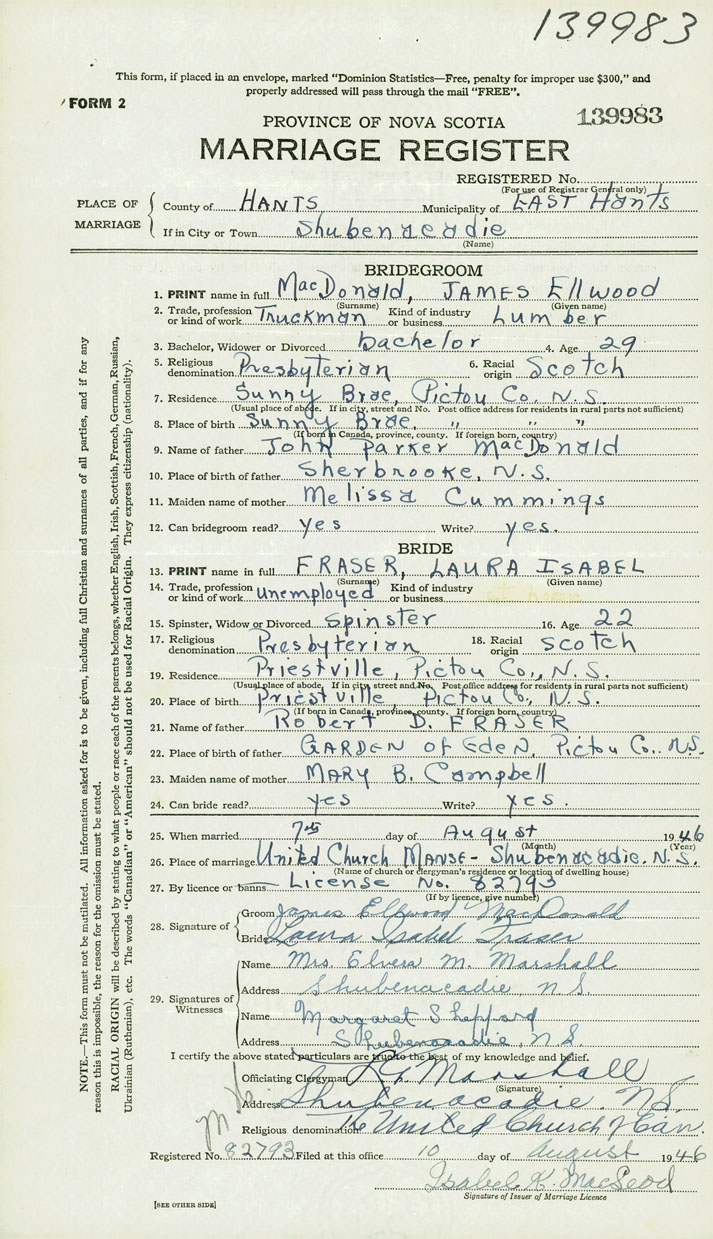 139983
This form, if placed in an envelope, marked "Dominion Statistics—Free, penalty for improper use $300," and
properly addressed will pass through the mail "FREE".
FORM 2
PROVINCE OF NOVA SCOTIA 139983
MARRIAGE REGISTER
REGISTERED No.
(For use of Registrar General only)
PLACE OF MARRIAGE
County of HANTS Municipality of EAST Hants
If in City or Town Shubenacadie
(Name)
BRIDEGROOM
1. PRINT name in full MacDonald, JAMES Ellwood
(Surname) (Given name)
2. Trade, profession or kind of work Truckman Kind of industry or business Lumber
3. Bachelor, Widower or Divorced bachelor 4. Age 29
5. Religious denomination Presbyterian 6. Racial origin Scotch
7. Residence Sunny Brae, Pictou Co. N.S.
(Usual place of abode. If in city, street and No. Post office address for residents in rural parts not sufficient)
8. Place of birth Sunny Brae, " " "
(If born in Canada, province, county. If foreign born, country)
9. Name of father John Parker MacDonald
10. Place of birth of father Sherbrooke, N.S.
11. Maiden name of mother Melissa Cummings
12. Can bridegroom read? yes Write? yes.
BRIDE
13. PRINT name in full FRASER, LAURA ISABEL
(Surname) (Given name)
14. Trade, profession or kind of work unemployed Kind of industry or business
15. Spinster, Widow or Divorced spinster 16. Age 22
17. Religious denomination Presbyterian 18. Racial origin scotch
19. Residence Priestville, Pictou Co., N.S.
(Usual place of abode. If in city, street and No. Post office address for residents in rural parts not sufficient)
20. Place of birth Priestville, Pictou Co., N.S.
(If born in Canada, province, county. If foreign born, country)
21. Name of father Robert D. FRASER
22. Place of birth of father GARDEN of Eden, Pictou Co., N.S.
23. Maiden name of mother MARY B. Campbell
24. Can bride read? yes Write? yes.
25. When married 7th day of August 1946
(Month) (Year)
26. Place of marriage United Church Manse- Shubenacadie. N.S.
(Name of church or clergyman's residence or location of dwelling house)
27. By licence or banns License No. 82793
(If by licence, give number)
28. Signature of
Groom James Ellwood MacDonald
Bride Laura Isabel Fraser
29. Signatures of Witnesses
Name Mrs. Elvera M. Marshall
Address Shubenacadie, N.S.
Name Margaret Sheppard
Address Shubenacadie, N.S.
I certify the above stated particulars are true to the best of my knowledge and belief.
Officiating Clergyman Marshall
(Signature)
Address Shubenacadie, N.S.
Religious denomination The United Church of Can.
Registered No. 82793 Filed at this office 10 day of August 1946
Isabel K. MacLeod
Signature of Issuer of Marriage Licence
[SEE OTHER SIDE]
NOTE.—This form must not be mutilated. All information asked for is to be given, including full Christian and surnames of all parties, and if for any
reason this is impossible, the reason for the omission must be stated.
RACIAL ORIGIN will be described by stating to what people or race each of the parents belongs, whether English, Irish, Scottish, French, German, Russian,
Ukrainian (Ruthenian), etc. The words "Canadian" or "American" should not be used for Racial Origin. They express citizenship (nationality).